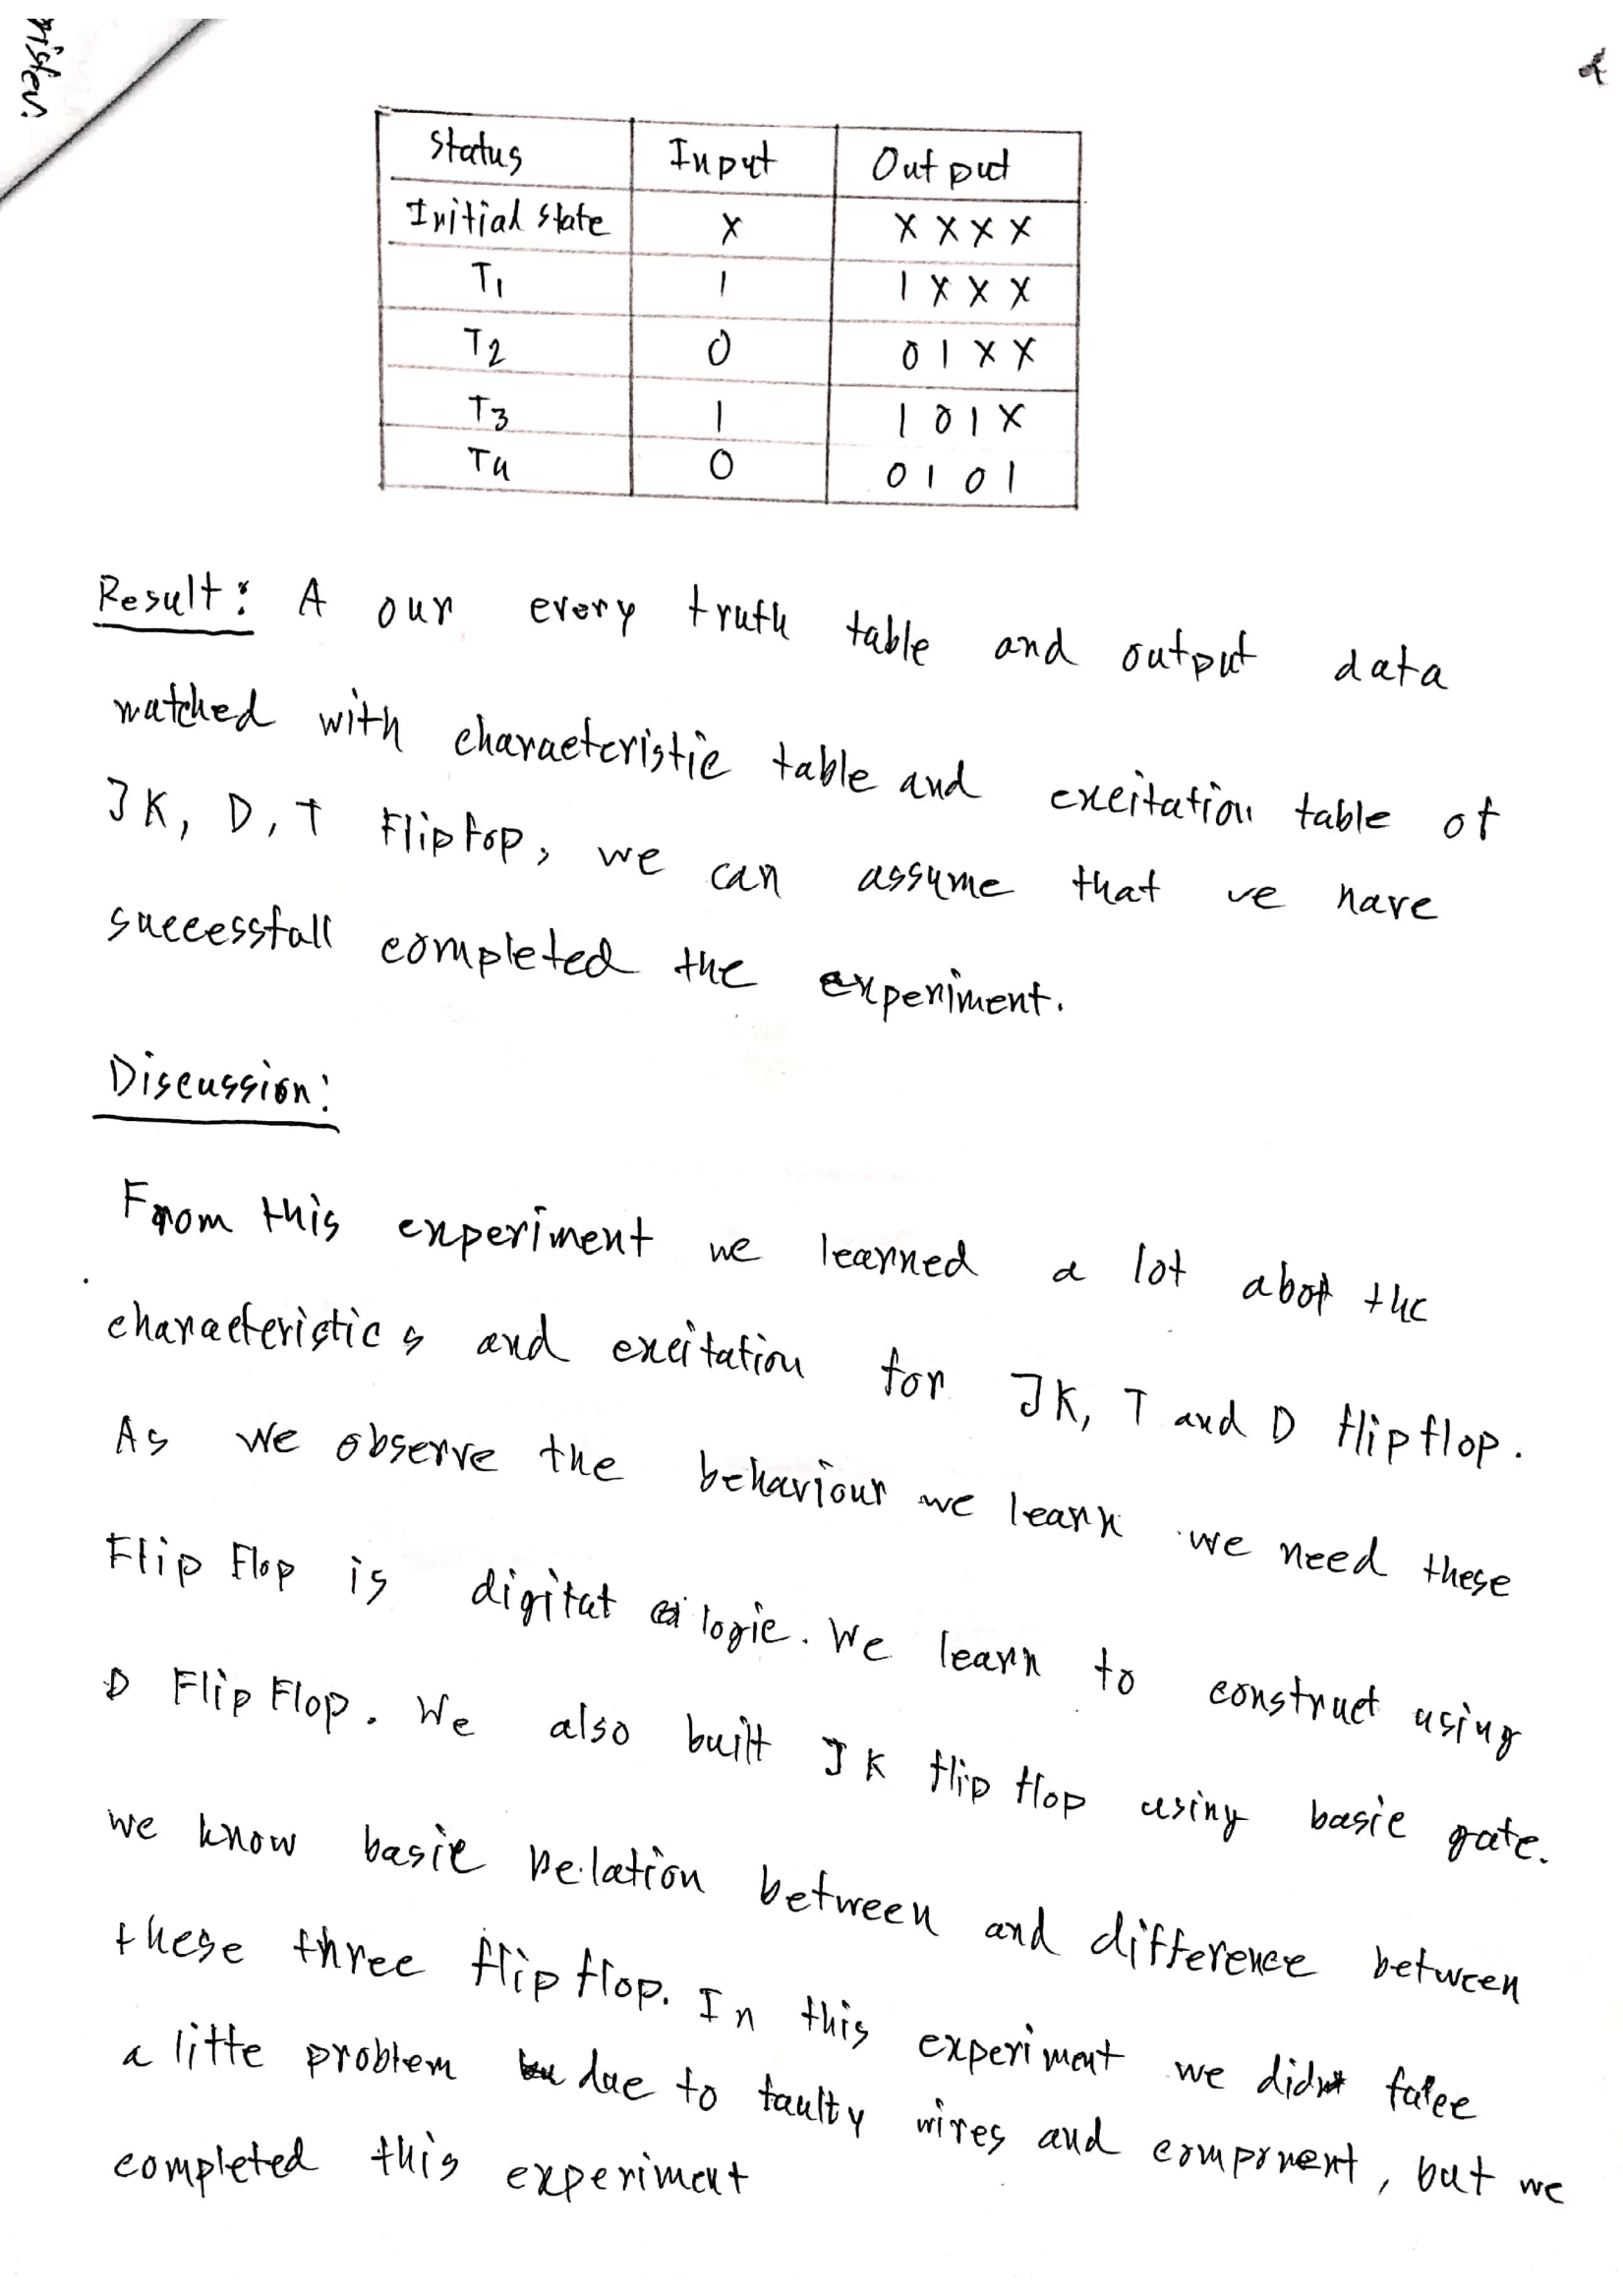 Status Input Output
Initial state X X X X X
T1 1 1 X X X
T2 0 0 1 X X
T3 1 1 0 1 X
T4 0 0 1 0 1
Result: A our every truth table and output data
matched with characteristic table and excitation table of
JK, D, T Flip fop, we can assume that we have
successfull completed the experiment.
Discussion:
From this experiment we learned a lot abot the
characteristics and excitation for JK, T and D flip flop.
As we observe the behaviour we learn we need these
Flip Flop is digital logic. We learn to construct using
D Flip Flop. We also built JK flip flop using basic gate.
we know basic Relation between and difference between
these three flip flop. In this experiment we did face
a litte problem due to faulty wires and component, but we
completed this experiment